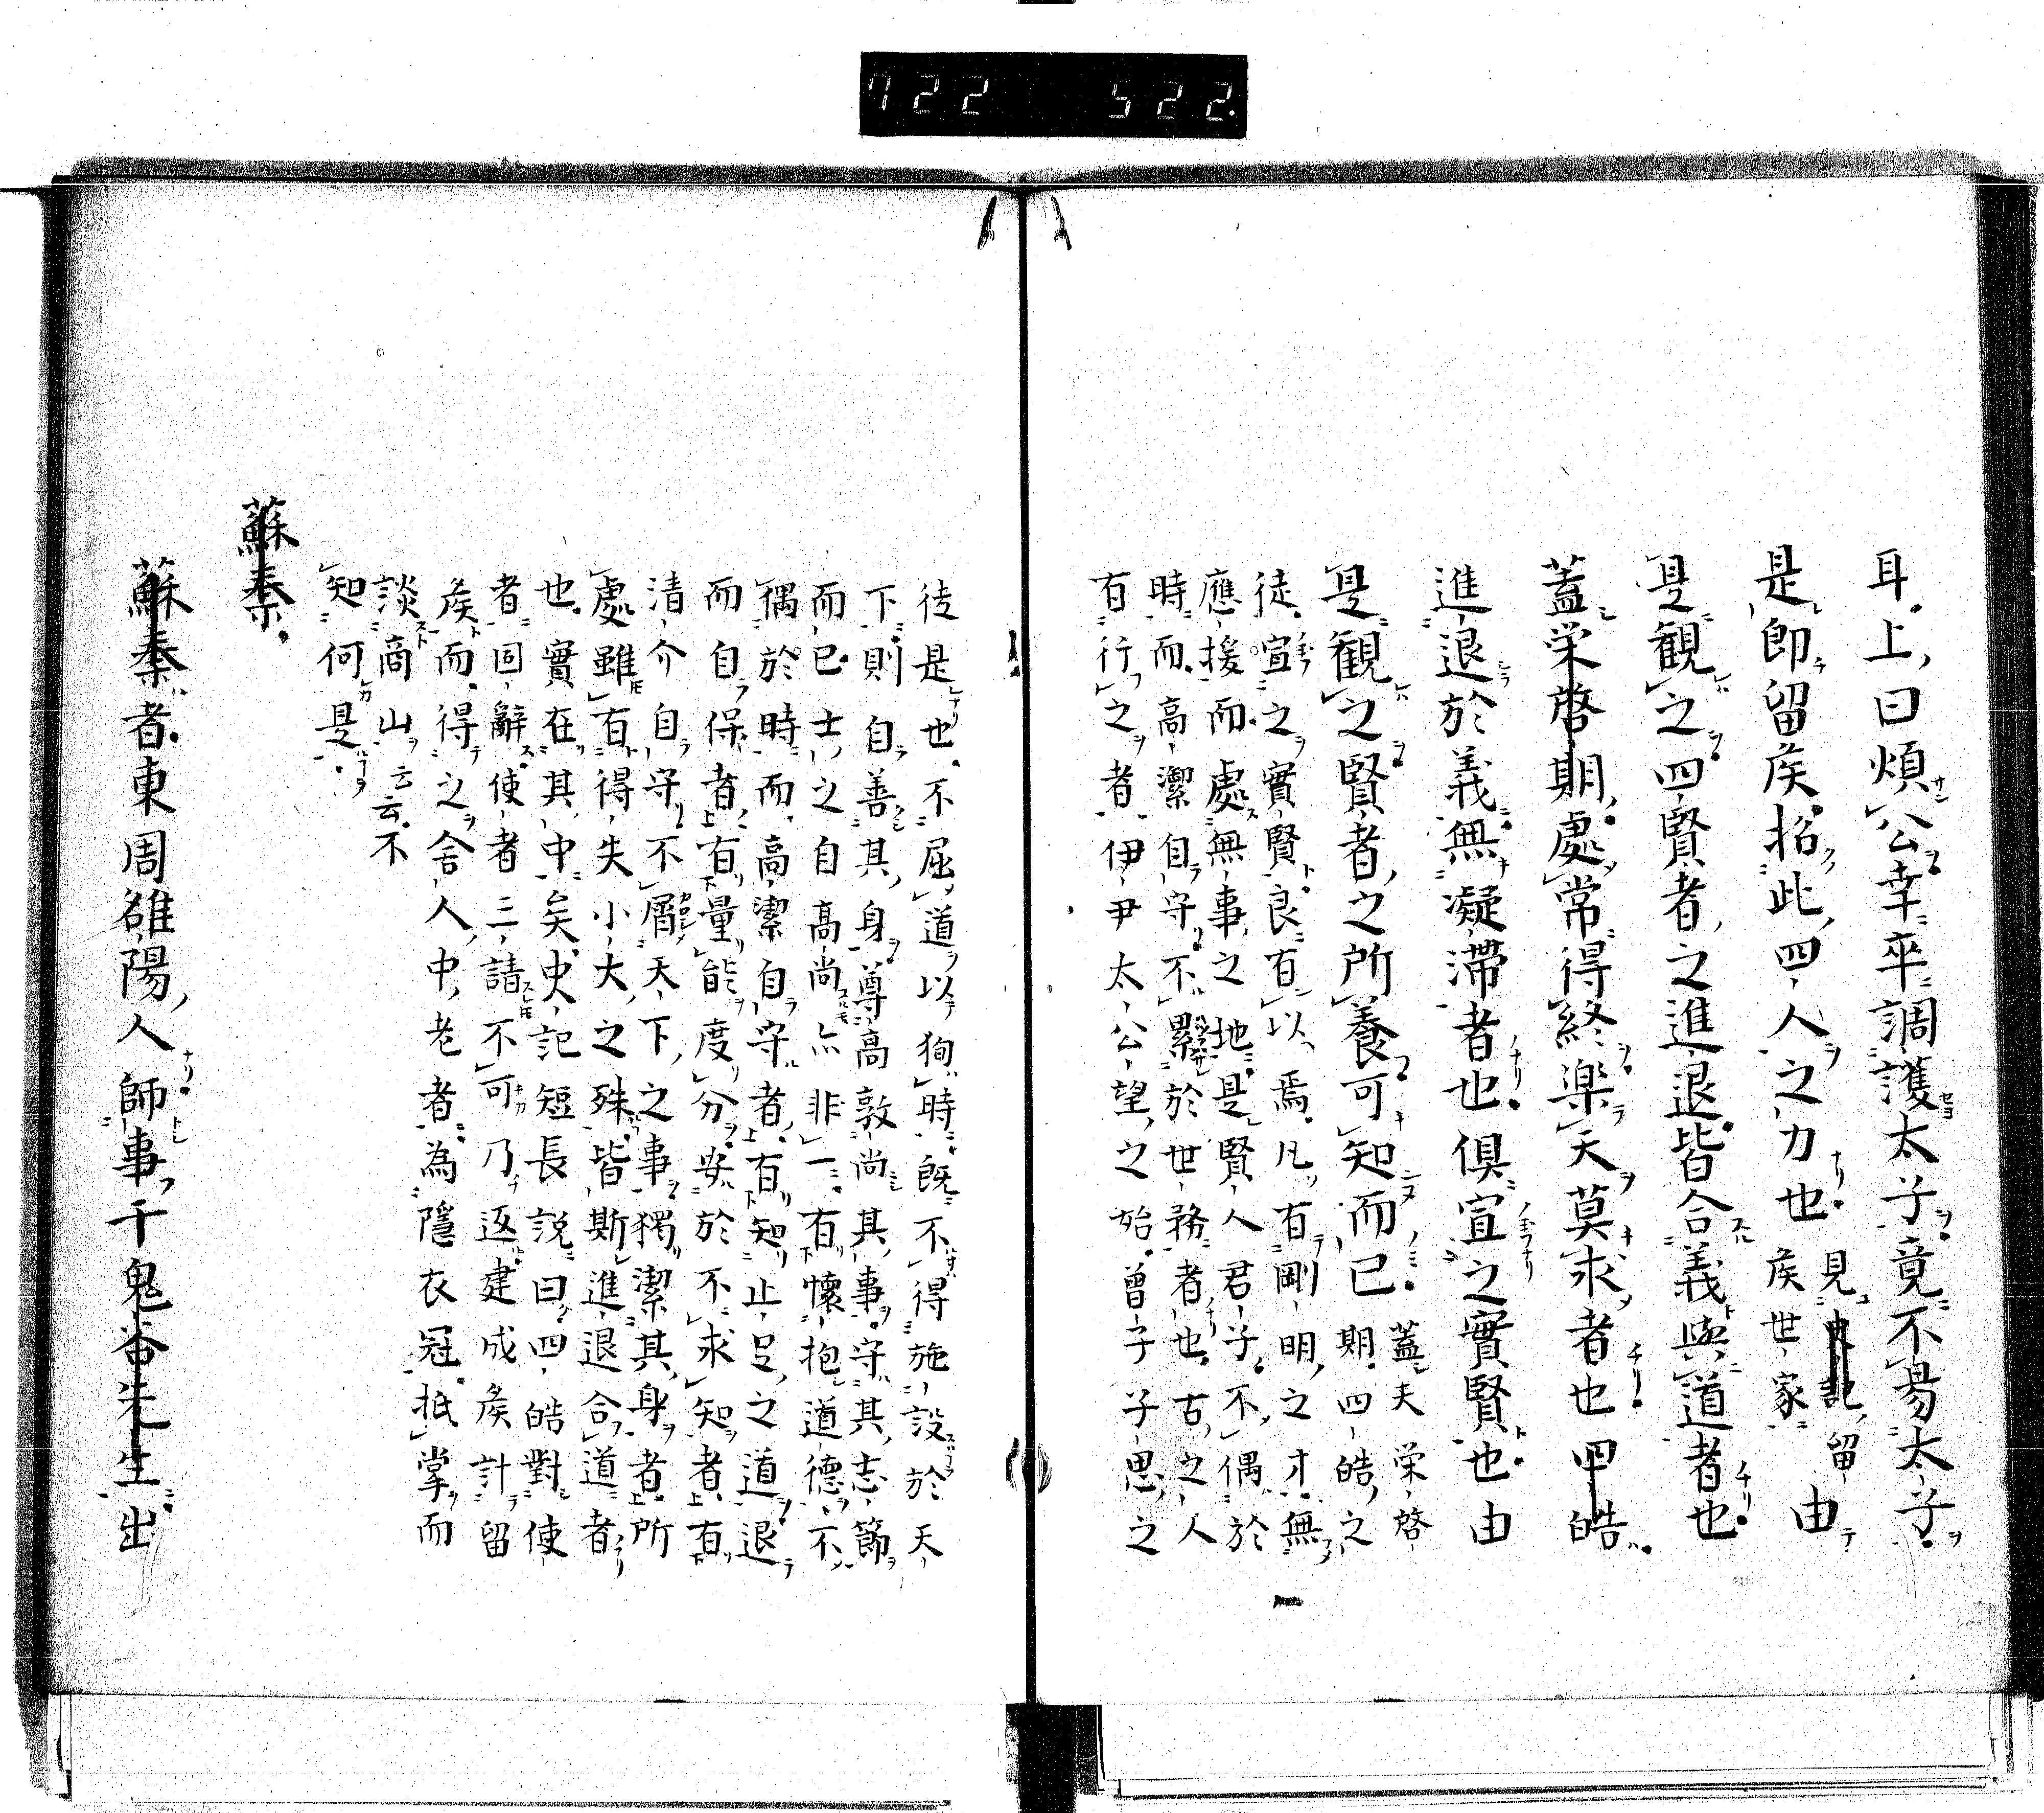 722 522.
耳上曰煩公幸卒調護太子竟不易太子
是即留矦招此四人之力也見史記留矦世家由
是觀之四賢者之進退皆合義與道者也
蓋栄啓期處常得終楽天莫求者也四皓
進退於義無凝滞者也倶宜之實賢也由
是観之賢者之所養可知而已蓋夫栄啓
期四皓之
徒宣之實賢良有以焉凡有剛明之才無
應援而處無事之地是賢人君子不偶於
時而高潔自守不累於世務者也古之人
有行之者伊尹太公望之始曽子子思之
徒是也不屈道以狥時既不得施設於天
下則自善其身尊高敦尚其事守其志節
而已士之自高尚亦非一有懐抱道德不
偶於時而高潔自守者有知止足之道退
而自保者有量能度分安於不求知者有
清介自守不屑天下之事獨潔其身者所
處雖有得失小大之殊皆斯進退合道者
也實在其中矣史記短長説曰四皓對使
者固辭使者三請不可乃返建成矦計留
矦而得之舎人中老者為隱衣冠抵掌而
談商山云云不
知何是
蘇秦
蘇秦者東周雒陽人師事于鬼谷先生出